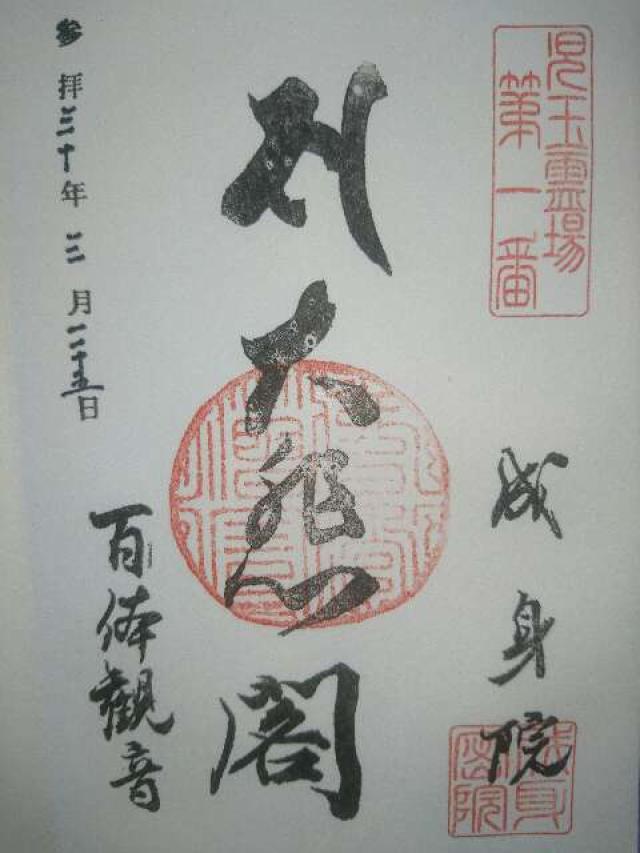 児玉霊場
第一番
成身院
大悲閣
百体観音
参拝三十年三月二十五日